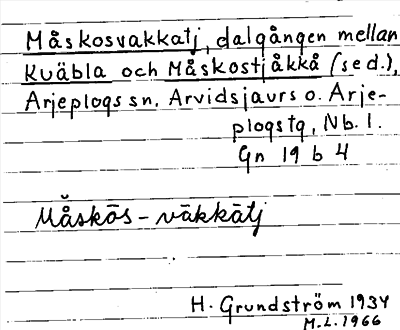 Måskosvakkatj, dalgången mellan
Kuäbla och Måskostjåkkå (se d.),
Arjeplogs sn, Arvidsjaurs o. Arje-
plogs tg, Nb. l.
Gn 19 b 4
Måskōs-văkkātj
H. Grundström 1934
M.L. 1966